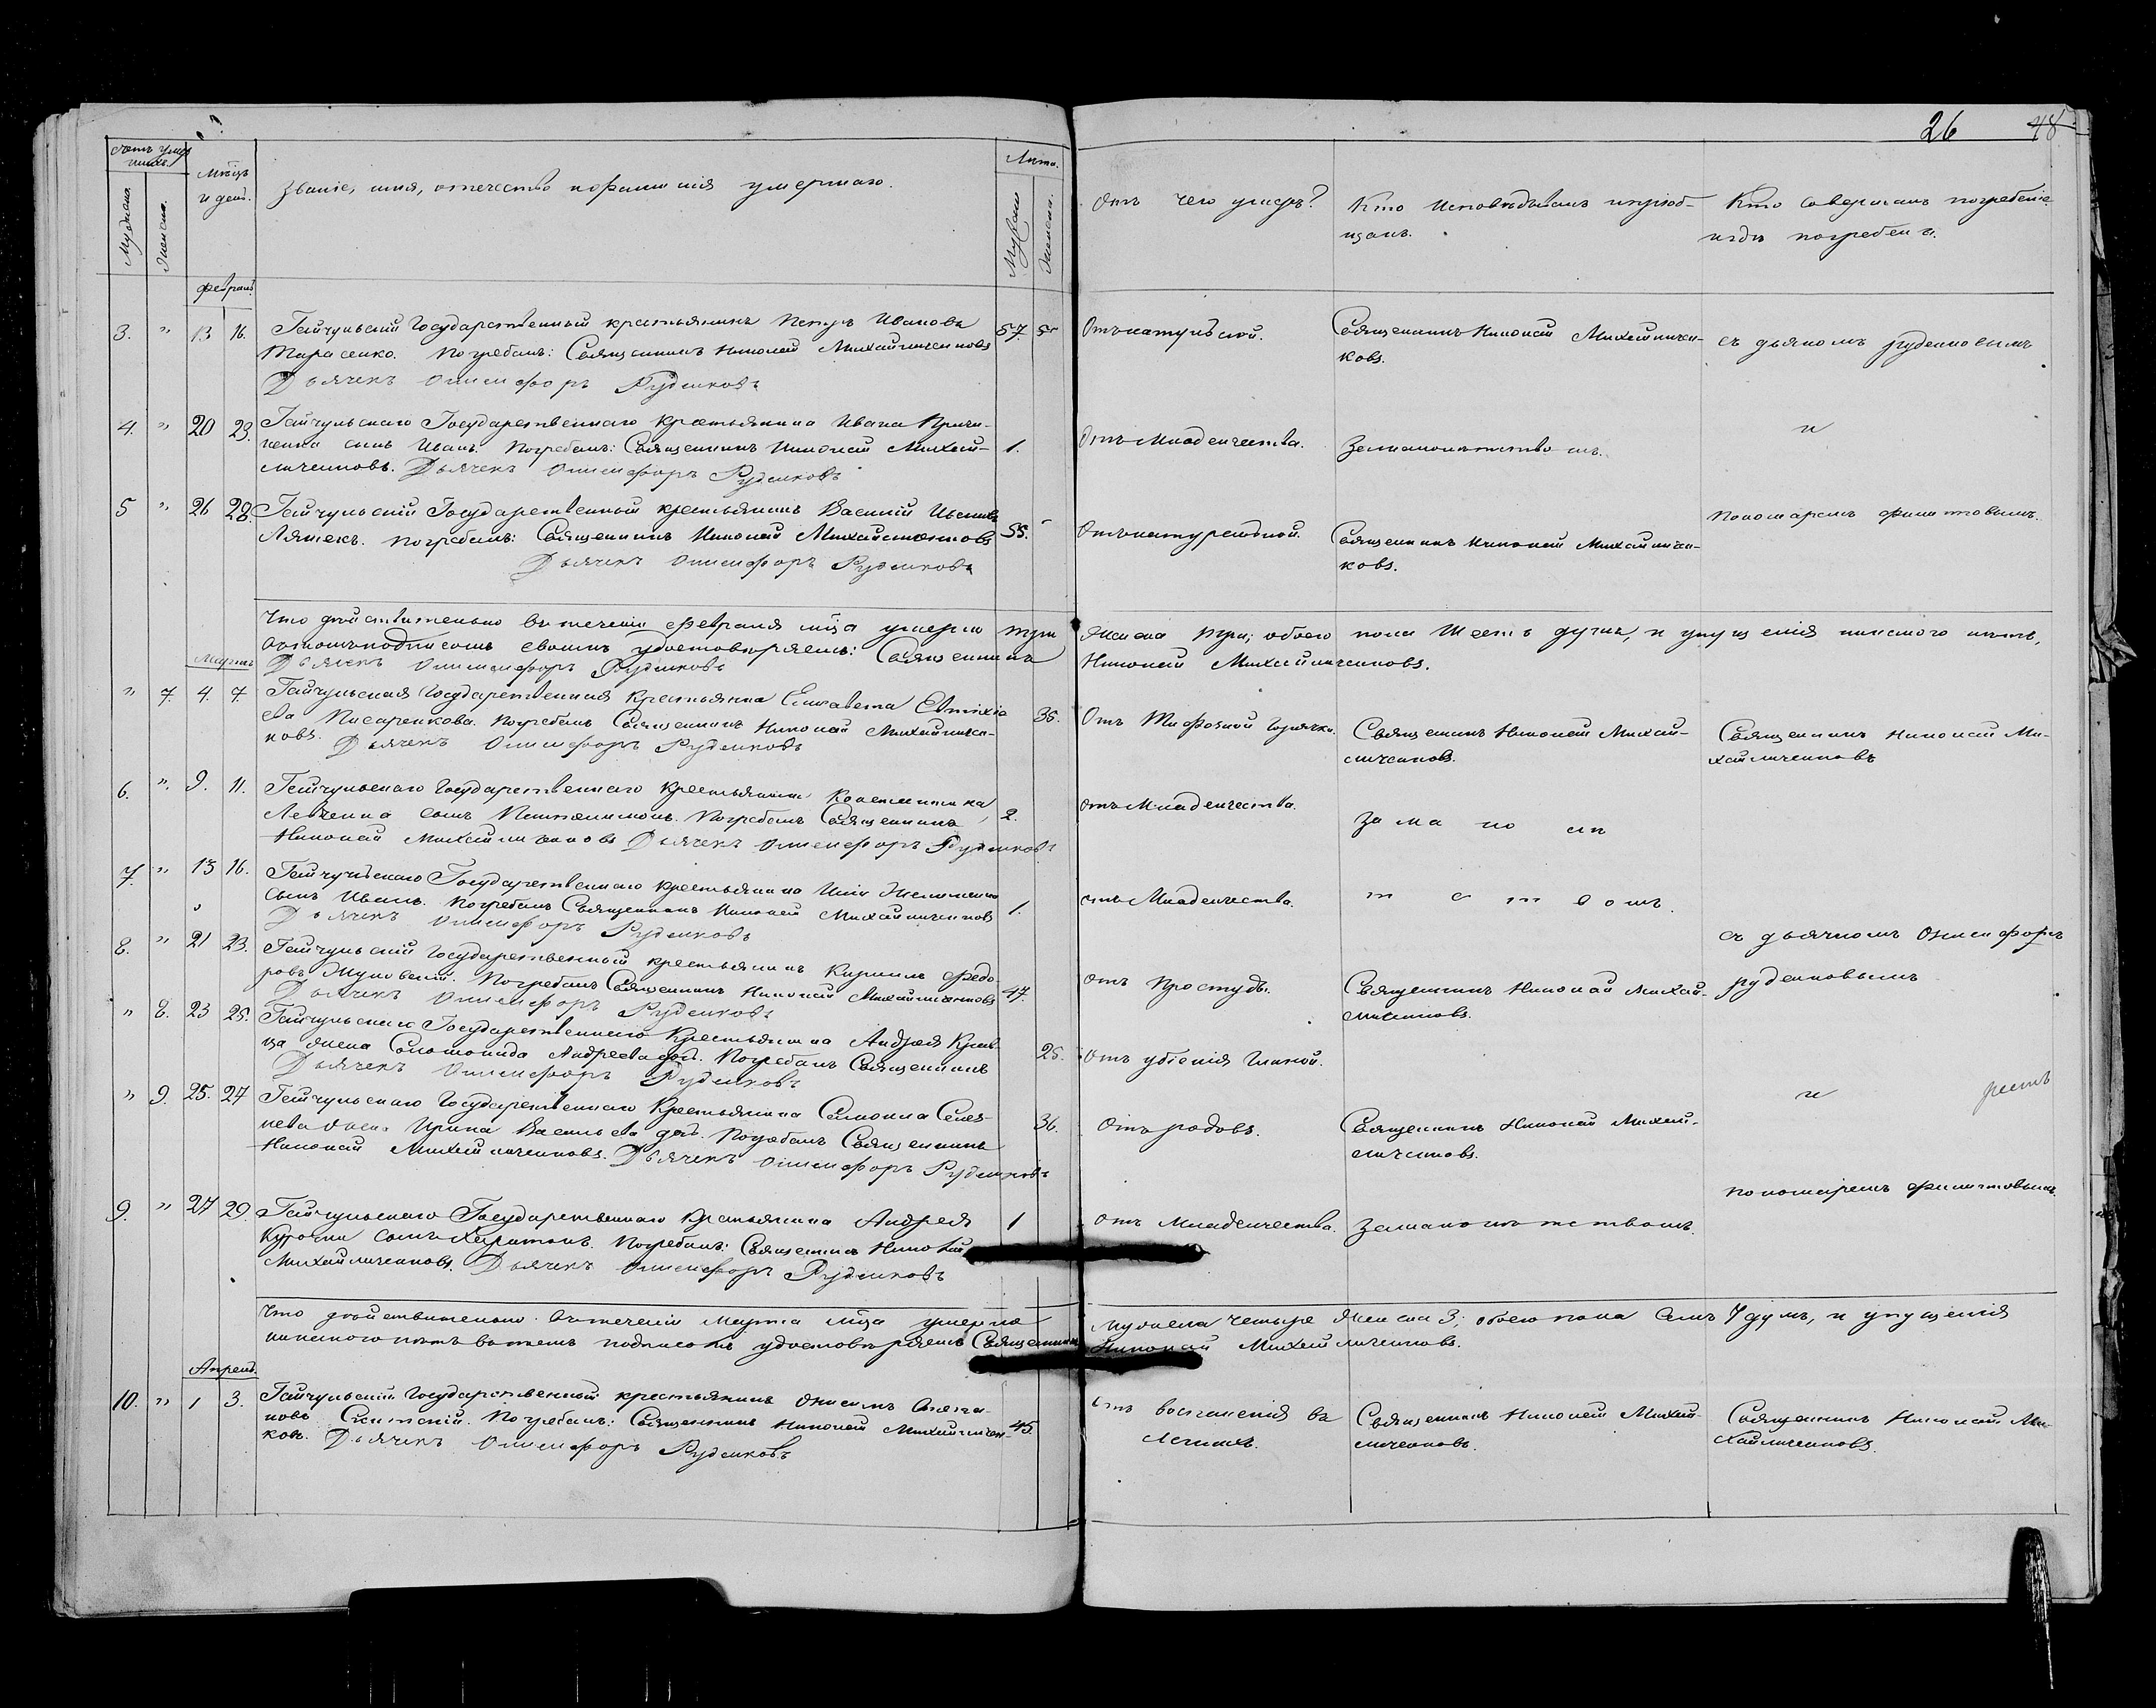 26 48
Счетъ умер
шихъ.
Мужеска
Женска.
Мѣсяцъ
и день.
Званіе, имя, отечество и фамилія умершаго.
Лѣта.
Мужеск
Женска.
Отъ чего умеръ?
Кто исповѣдывалъ и пріоб-
щалъ.
Кто совершалъ погребеніе
и гдѣ погребенъ.
Февраль
3. " 13 16. Гайчульскій Государственный крестьянинъ Петръ Ивановъ 57.
Тарасенко. Погребалъ: Священникъ Николай Михайличенковъ
Дьячекъ Онисифоръ Руденковъ
Священникъ Николай Михайличен-
ковъ.
съ дьякомъ Руденковымъ
4. " 20 23. Гайчульскаго Государственнаго крестьянина Ивана
сынъ Иванъ. Погребалъ: Священникъ Николай Михай- 1.
личенковъ. Дьячекъ Онисифоръ Руденковъ
Отъ Младенчества.
Замалолѣтствомъ.
и
5 " 26 28. Гайчульскій Государственный крестьянинъ Василій
Ляшекъ. Погребалъ: Священникъ Николай Михайличенковъ 55.
Дьячекъ Онисифоръ Руденковъ
Отъ натуральной.
Священникъ Николай Михайличен-
ковъ.
Пономаремъ Филиповымъ.
Что дѣйствительно въ теченіи Февраля мѣсяца умерло три
женска три; обоего пола шесть душъ, и упущенія никакого нѣтъ,
своимъ удостовѣряемъ: Священникъ
Николай Михайличенковъ.
Дьячекъ Онисифоръ Руденковъ
Мартъ
" 7. 4. 7. Гайчульская Государственная Крестьянка Елисавета Евтихіе
ва Писаренкова. Погребалъ Священникъ Николай Михайличен- 35.
ковъ. Дьячекъ Онисифоръ Руденковъ
Отъ Тифозной горячки.
Священникъ Николай Михай-
личенковъ.
Священникъ Николай Ми-
хайличенковъ
6. " 9. 11. Гайчульскаго Государственнаго Крестьянина
Левченка сынъ Пантелимонъ. Погребалъ Священникъ 2.
Николай Михайличенковъ Дьячекъ Онисифоръ Руденковъ
отъ Младенчества.
за ма ло лѣ
7. " 13 16. Гайчульскаго Государственнаго Крестьянина
сынъ Иванъ. Погребалъ Священникъ Николай Михайличенковъ 1.
Дьячекъ Онисифоръ Руденковъ
отъ Младенчества.
т с т в омъ.
8. " 21 23. Гайчульскій Государственный крестьянинъ Кириллъ Федо
ровъ Жуковскій. Погребалъ Священникъ Николай Михайличенковъ 47.
Дьячекъ Онисифоръ Руденковъ
отъ Простуды.
Священникъ Николай Михай-
личенковъ.
съ дьячкомъ Онисифоръ
Руденковымъ
" 8. 23 25. Гайчульскаго Государственнаго Крестьянина Андрея Крав-
ца жена Соломонида Андреева доч. Погребалъ Священникъ 25.
Дьячекъ Онисифоръ Руденковъ
Отъ убіенія
и
" 9. 25. 27 Гайчульскаго Государственнаго Крестьянина Самоила Селез-
нева жена Ирина Васильева доч. Погребалъ Священникъ 36.
Николай Михайличенковъ. Дьячекъ Онисифоръ Руденковъ
Отъ родовъ.
Священникъ Николай Михай-
личенковъ.
Пономаремъ Филиповымъ.
9. " 27 29. Гайчульскаго Государственнаго Крестьянина Андрея 1
сынъ Харитонъ. Погребалъ: Священникъ Николай
Михайличенковъ. Дьячекъ Онисифоръ Руденковъ
отъ Младенчества.
Замалолѣтствомъ.
Что дѣйствительно въ теченіи Марта мѣсяца умерло
мужеска четыре женска 3; обоего пола семь 7 душъ, и упущенія
никакого нѣтъ въ томъ подписомъ удостовѣряемъ Священникъ
Николай Михайличенковъ.
Апрель.
10. " 1 3. Гайчульскій Государственный крестьянинъ Онисимъ
новъ Погребалъ: Священникъ Николай Михайличен- 45.
ковъ. Дьячекъ Онисифоръ Руденковъ
отъ воспаленія въ
легкихъ.
Священникъ Николай Михай-
личенковъ.
Священникъ Николай Ми-
хайличенковъ.